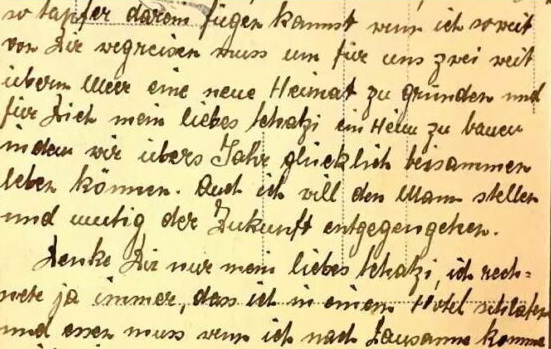 so tapfer darein fügen kannst wenn ich soweit
von Dir wegreisen muss um für uns zwei weit
überm Meer eine neue Heimat zu gründen und
für Dich mein liebes Schatzi ein Heim zu bauen
indem wir übers Jahr glücklich beisammen
leben können. Auch ich will den Mann stellen
und mutig der Zukunft entgegengehen.
Denke Dir nur mein liebes Schatzi, ich rech=
nete ja immer, dass ich in einem Hotel schlafen
und essen muss wenn ich nach Lausanne komme